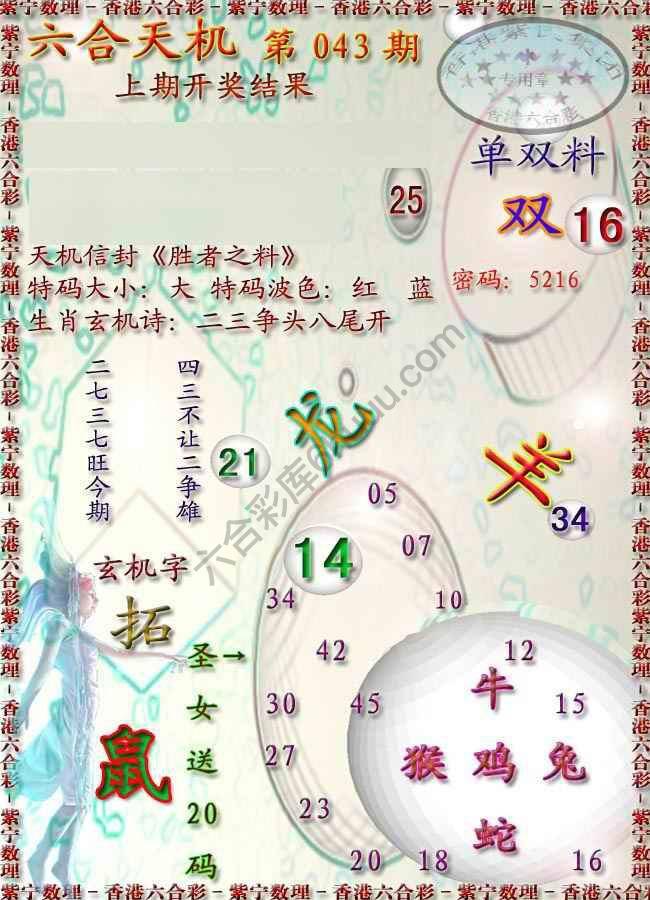 紫宁数理－香港六合彩－紫宁数理－香港六合彩－紫宁数理－香港六合彩
六合天机 第 043 期
上期开奖结果
专用章
香港六合彩
单双料
双 16
25
天机信封《胜者之料》
特码大小：大 特码波色：红 蓝
密码：5216
生肖玄机诗：二三争头八尾开
二七三七旺今期
四三不让二争雄
21
龙
羊
34
05
14
07
玄机字
拓
34
10
圣女送20码
→
42
12
牛
30
45
15
鼠
27
猴 鸡 兔
23
蛇
20
18
16
紫宁数理－香港六合彩－紫宁数理－香港六合彩－紫宁数理－香港六合彩